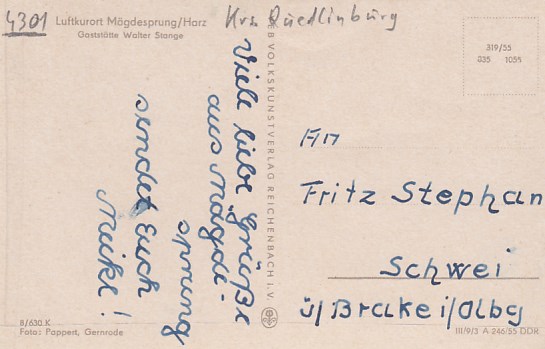 4301
Krs. Quedlinburg
Luftkurort Mägdesprung/Harz
Gaststätte Walter Stange
Viele liebe Grüße
aus Mägde-
sprung
sendet Euch
VEB VOLKSKUNSTVERLAG REICHENBACH I. V.
319/55
035 1055
An
Fritz Stephan
Schwei
ü/Brake i/Olbg
8/630 K
Foto: Pappert, Gernrode
III/9/3 A 246/55 DDR